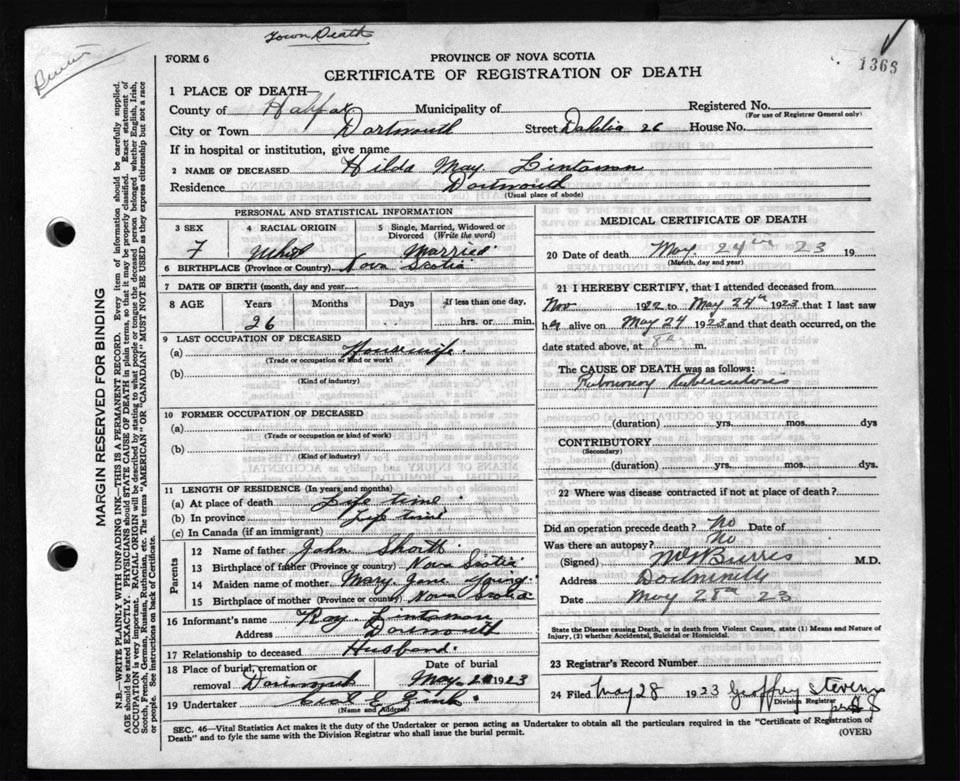 Town Death
FORM 6
PROVINCE OF NOVA SCOTIA
CERTIFICATE OF REGISTRATION OF DEATH
1368
1 PLACE OF DEATH
County of Halifax Municipality of Registered No.
(For use of Registrar General only)
City or Town Dartmouth Street Dahlia 26 House No.
If in hospital or institution, give name
2 NAME OF DECEASED Hilda May Lintaman
Residence Dartmouth
(Usual place of abode)
PERSONAL AND STATISTICAL INFORMATION
3 SEX 4 RACIAL ORIGIN 5 Single, Married, Widowed or Divorced (Write the word)
F White Married
6 BIRTHPLACE (Province or Country) Nova Scotia
7 DATE OF BIRTH (month, day and year)
8 AGE Years Months Days If less than one day,
26 hrs. or min.
9 LAST OCCUPATION OF DECEASED
(a) Housewife
(Trade or occupation or kind or work)
(b)
(Kind of industry)
10 FORMER OCCUPATION OF DECEASED
(a)
(Trade or occupation or kind of work)
(b)
(Kind of industry)
11 LENGTH OF RESIDENCE (In years and months)
(a) At place of death Life time
(b) In province Life time
(c) In Canada (if an immigrant)
Parents
12 Name of father John
13 Birthplace of father (Province or country) Nova Scotia
14 Maiden name of mother Mary Jane
15 Birthplace of mother (Province or country) Nova Scotia
16 Informant's name Roy Lintaman
Address Dartmouth
17 Relationship to deceased Husband
18 Place of burial, cremation or removal Dartmouth
Date of burial May 1923
19 Undertaker E Zink
(Name and Address)
MEDICAL CERTIFICATE OF DEATH
20 Date of death May 24th 23 19
(Month, day and year)
21 I HEREBY CERTIFY, that I attended deceased from
Nov 1922 to May 24th 1923 that I last saw
her alive on May 24 1923 and that death occurred, on
date stated above, at m.
The CAUSE OF DEATH was as follows:
Pulmonary tuberculosis
(duration) yrs. mos. dys
CONTRIBUTORY
(Secondary)
(duration) yrs. mos. dys.
22 Where was disease contracted if not at place of death?
Did an operation precede death? No Date of
Was there an autopsy? No
(Signed) M.D.
Address
Date May 28th 23
State the Disease causing Death, or in death from Violent Causes, state (1) Means and Nature of
Injury, (2) whether Accidental, Suicidal or Homicidal.
23 Registrar's Record Number
24 Filed May 28 1923 Geoffrey Stevens
Division Registrar
SEC. 46—Vital Statistics Act makes it the duty of the Undertaker or person acting as Undertaker to obtain all the particulars required in the "Certificate of Registration of
Death" and to fyle the same with the Division Registrar who shall issue the burial permit.
(OVER)
MARGIN RESERVED FOR BINDING
N.B.—WRITE PLAINLY WITH UNFADING INK—THIS IS A PERMANENT RECORD. Every item of information should be carefully supplied.
AGE should be stated EXACTLY. PHYSICIANS should STATE CAUSE OF DEATH in plain terms, so that it may be properly classified. Exact statement of
OCCUPATION is very important. RACIAL ORIGIN will be described by stating to what people or tongue the deceased person belonged whether English, Irish,
Scotch, French, German, Russian, Ruthenian, etc. The terms "AMERICAN" OR "CANADIAN" MUST NOT BE USED as they express citizenship but not a race
or people. See instructions on back of Certificate.